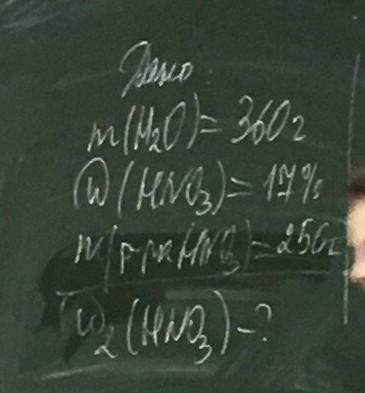 Дано:
m(H₂O)=360г
W(HNO₃)=17%
m(р-раHNO₃)=250г
W₂(HNO₃)-?